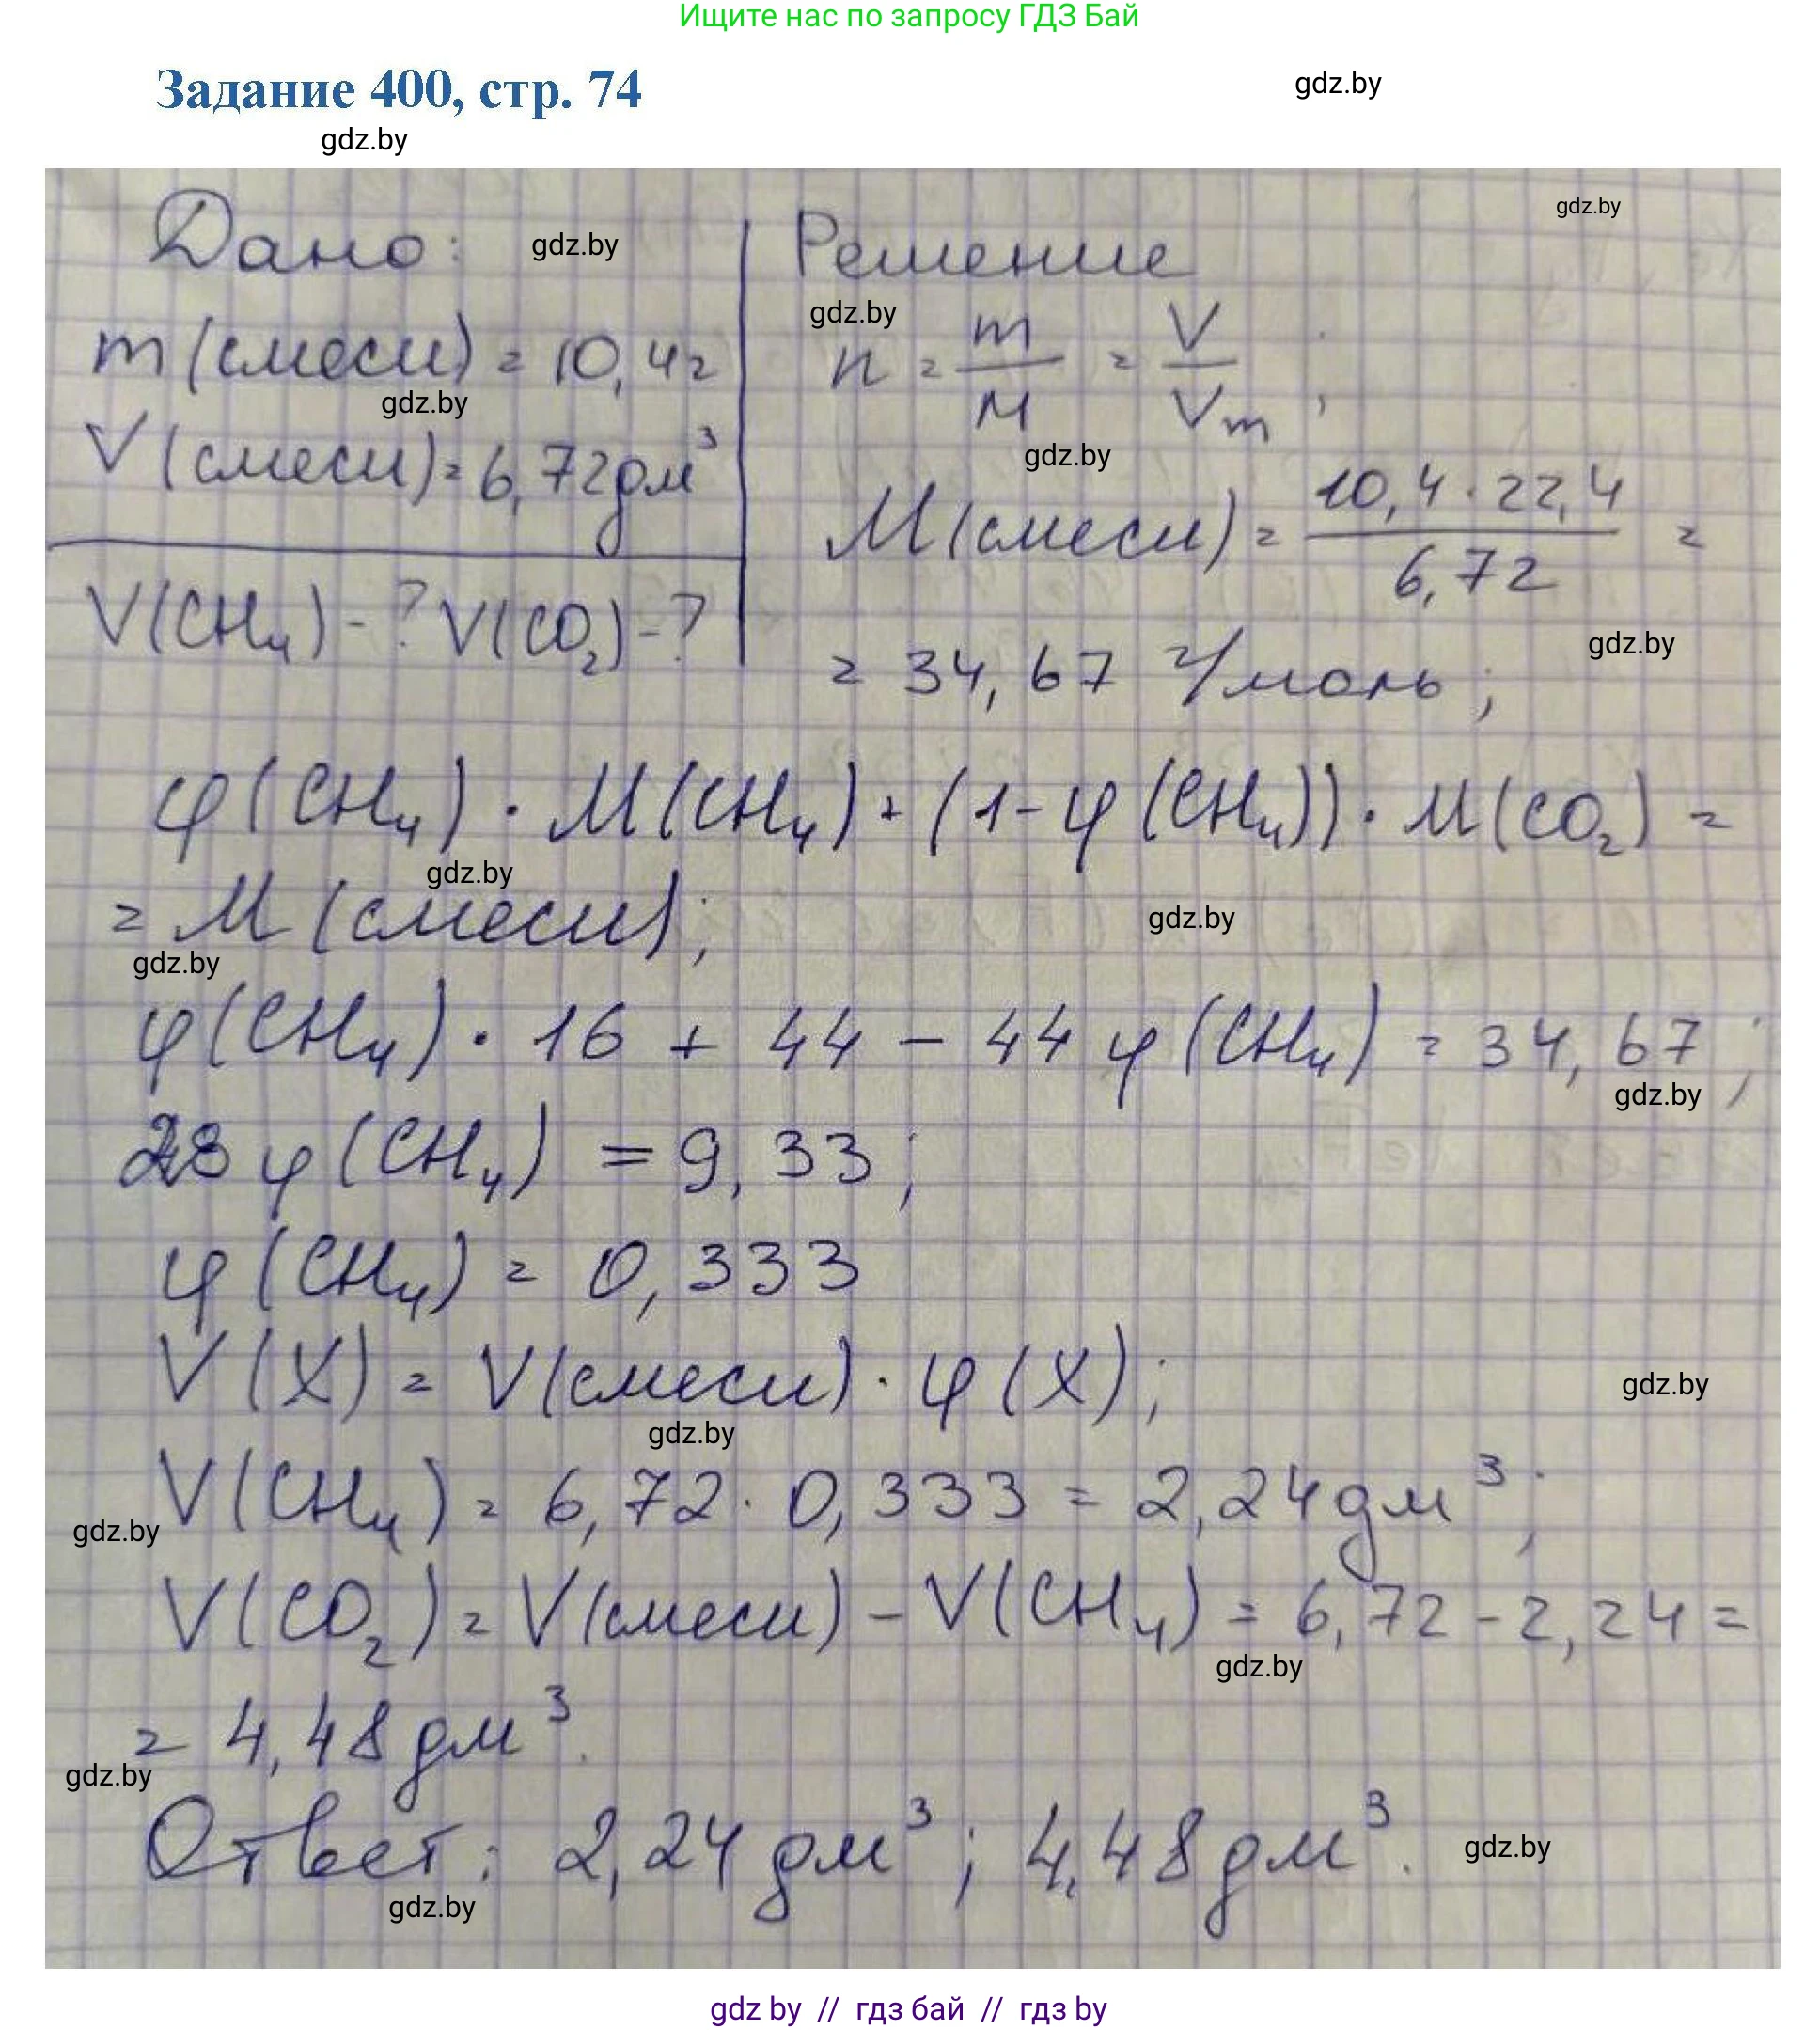 Ищите нас по запросу ГДЗ Бай
Задание 400, стр. 74
gdz.by
gdz.by
gdz.by
Дано:
gdz.by
Решение
gdz.by
m (смеси) = 10,4г
n = m/M = V/Vm ;
gdz.by
V (смеси) = 6,72дм³
gdz.by
M (смеси) = 10,4 · 22,4 / 6,72 =
V(CH₄) - ? V(CO₂) - ?
= 34,67 г/моль ;
gdz.by
φ(CH₄) · M(CH₄) + (1 - φ(CH₄)) · M(CO₂) =
gdz.by
= M (смеси) ;
gdz.by
gdz.by
φ(CH₄) · 16 + 44 - 44 φ(CH₄) = 34,67 ;
gdz.by
28 φ(CH₄) = 9,33 ;
φ(CH₄) = 0,333
V(X) = V(смеси) · φ(X) ;
gdz.by
gdz.by
V(CH₄) = 6,72 · 0,333 = 2,24 дм³ ;
gdz.by
V(CO₂) = V(смеси) - V(CH₄) = 6,72 - 2,24 =
gdz.by
= 4,48 дм³.
gdz.by
Ответ: 2,24 дм³ ; 4,48 дм³.
gdz.by
gdz.by
gdz by // гдз бай // гдз by